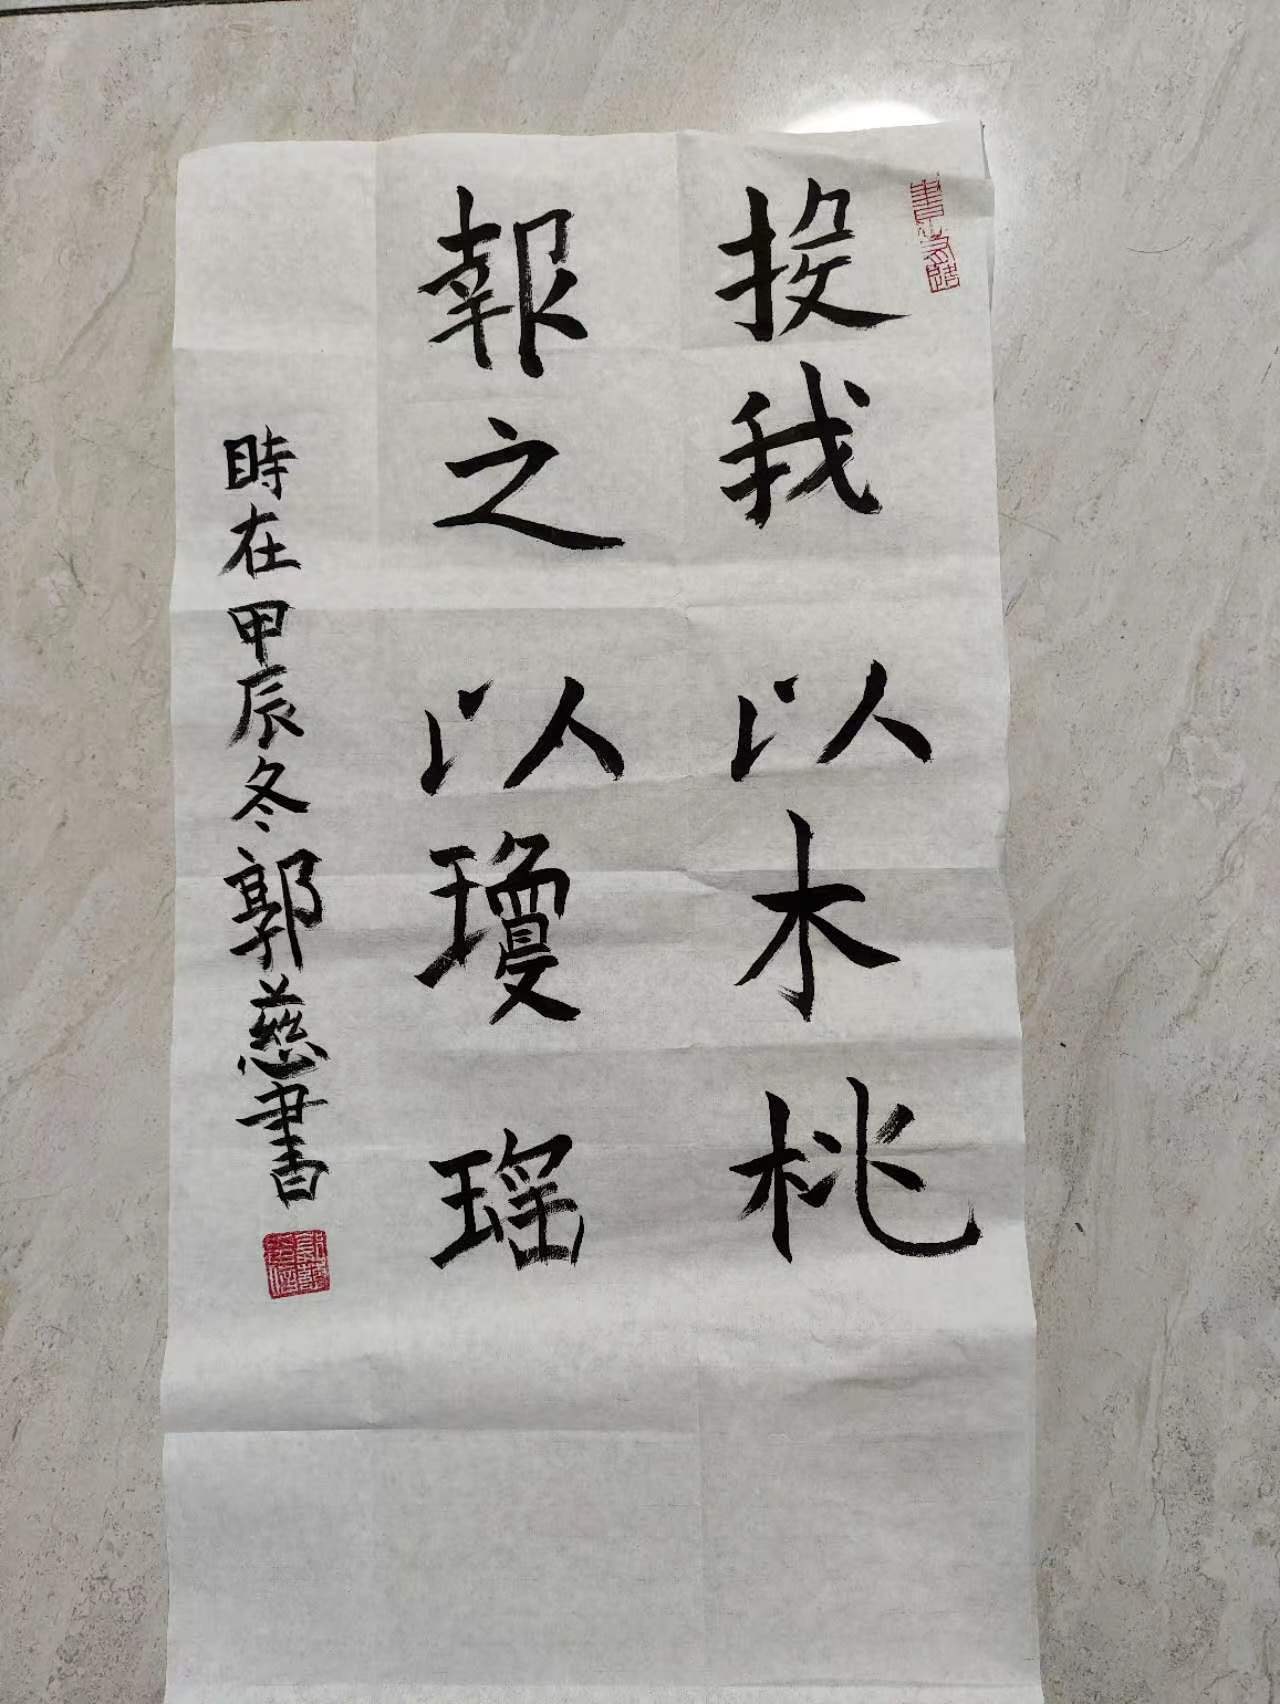 投我以木桃
報之以瓊瑤
時在甲辰冬郭慈書